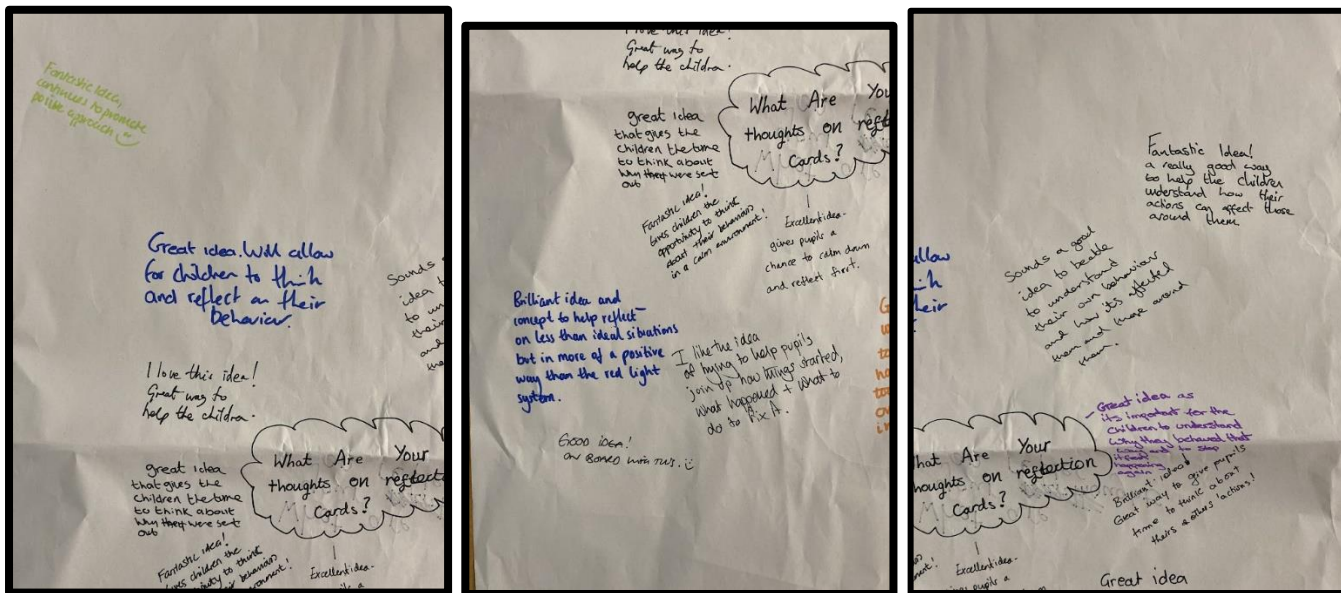 Fantastic idea,
continues to promote
positive approach
Great idea. Will allow
for children to think
and reflect on their
behavior.
Sounds a
idea to
to un
their
and
the
I love this idea!
Great way to
help the children.
What Are Your
thoughts on reflection
Cards?
great idea
that gives the
children the time
to think about
why they were sent
out
Fantastic idea!
Gives children the
opportunity to think
their behaviours
environment!
Excellent idea-
I love this idea!
Great way to
help the children.
What Are You
thoughts on refle
Cards?
great idea
that gives the
children the time
to think about
why they were sent
out
Fantastic idea!
Gives children the
opportunity to think
about their behaviours
in a calm environment!
Excellent idea-
gives pupils a
chance to calm down
and reflect first.
Brilliant idea and
concept to help reflect
on less than ideal situations
but in more of a positive
way than the red light
system.
I like the idea
of trying to help pupils
join up how things started,
what happened + what to
do to fix it.
GOOD IDEA!
ON BOARD WITH THIS.
Fantastic Idea!
a really good way
to help the children
understand how their
actions can affect those
around them
allow
Sounds a good
idea to be able
to understand
their own behaviour
and how it's affected
them and those around
them.
Great idea as
its important for the
children to understand
why they behaved that
way and to stop
it from
happening
again
Brilliant idea!
Great way to give pupils
time to think about
theirs & others 'actions!
hat Are Your
oughts on reflection
Cards?
Excellent idea-
gives pupils a
Great idea